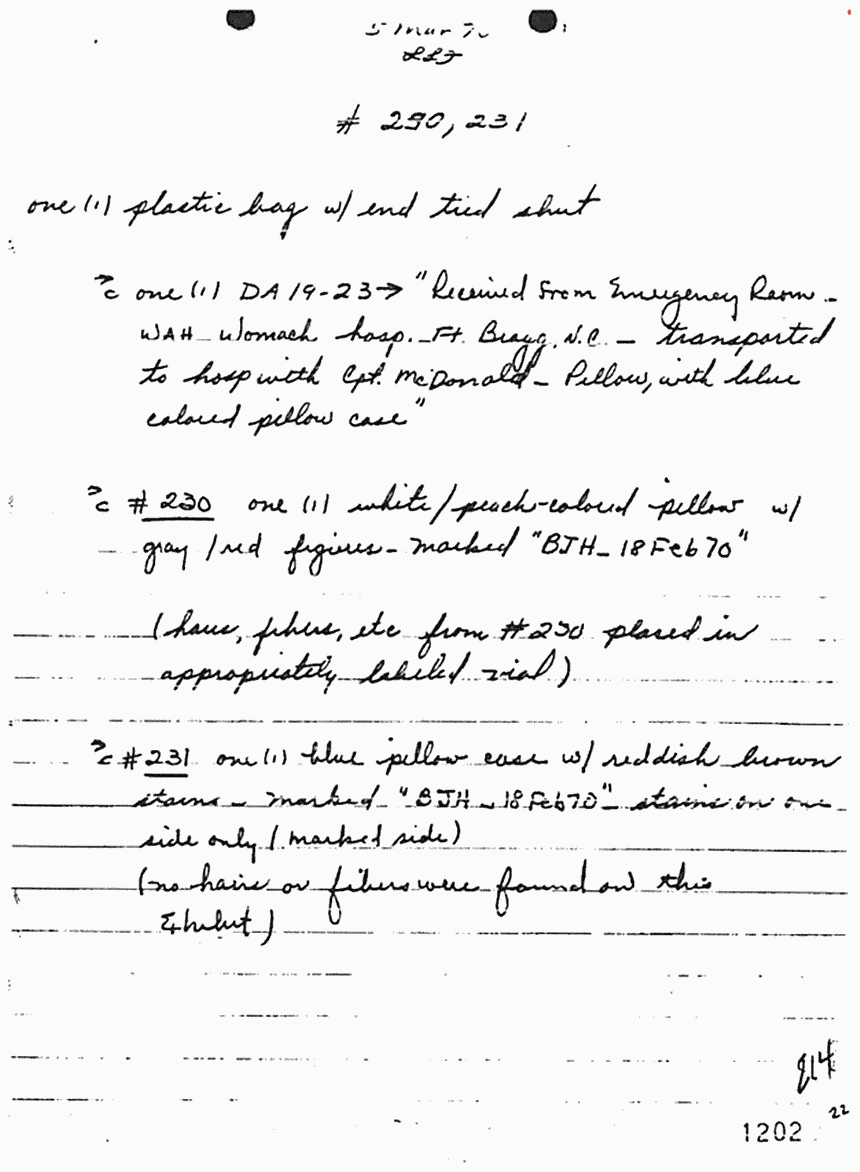 5 Mar 70
# 230, 231
one (1) plastic bag w/ end tied shut
c̄ one (1) DA 19-23 → "Received from Emergency Room -
WAH Womach hosp. - Ft. Bragg, N.C. - transported
to hosp with Cpt. McDonald - Pillow, with blue
colored pillow case"
c̄ # 230 one (1) white/peach-colored pillow w/
gray/red figures - marked "BJH - 18 Feb 70"
(hairs, fibers, etc from # 230 placed in
appropriately labeled vial)
c̄ # 231 one (1) blue pillow case w/ reddish brown
stains - marked "BJH - 18 Feb 70" - stains on one
side only (marked side)
(no hairs or fibers were found on this
Exhibit)
914
22
1202